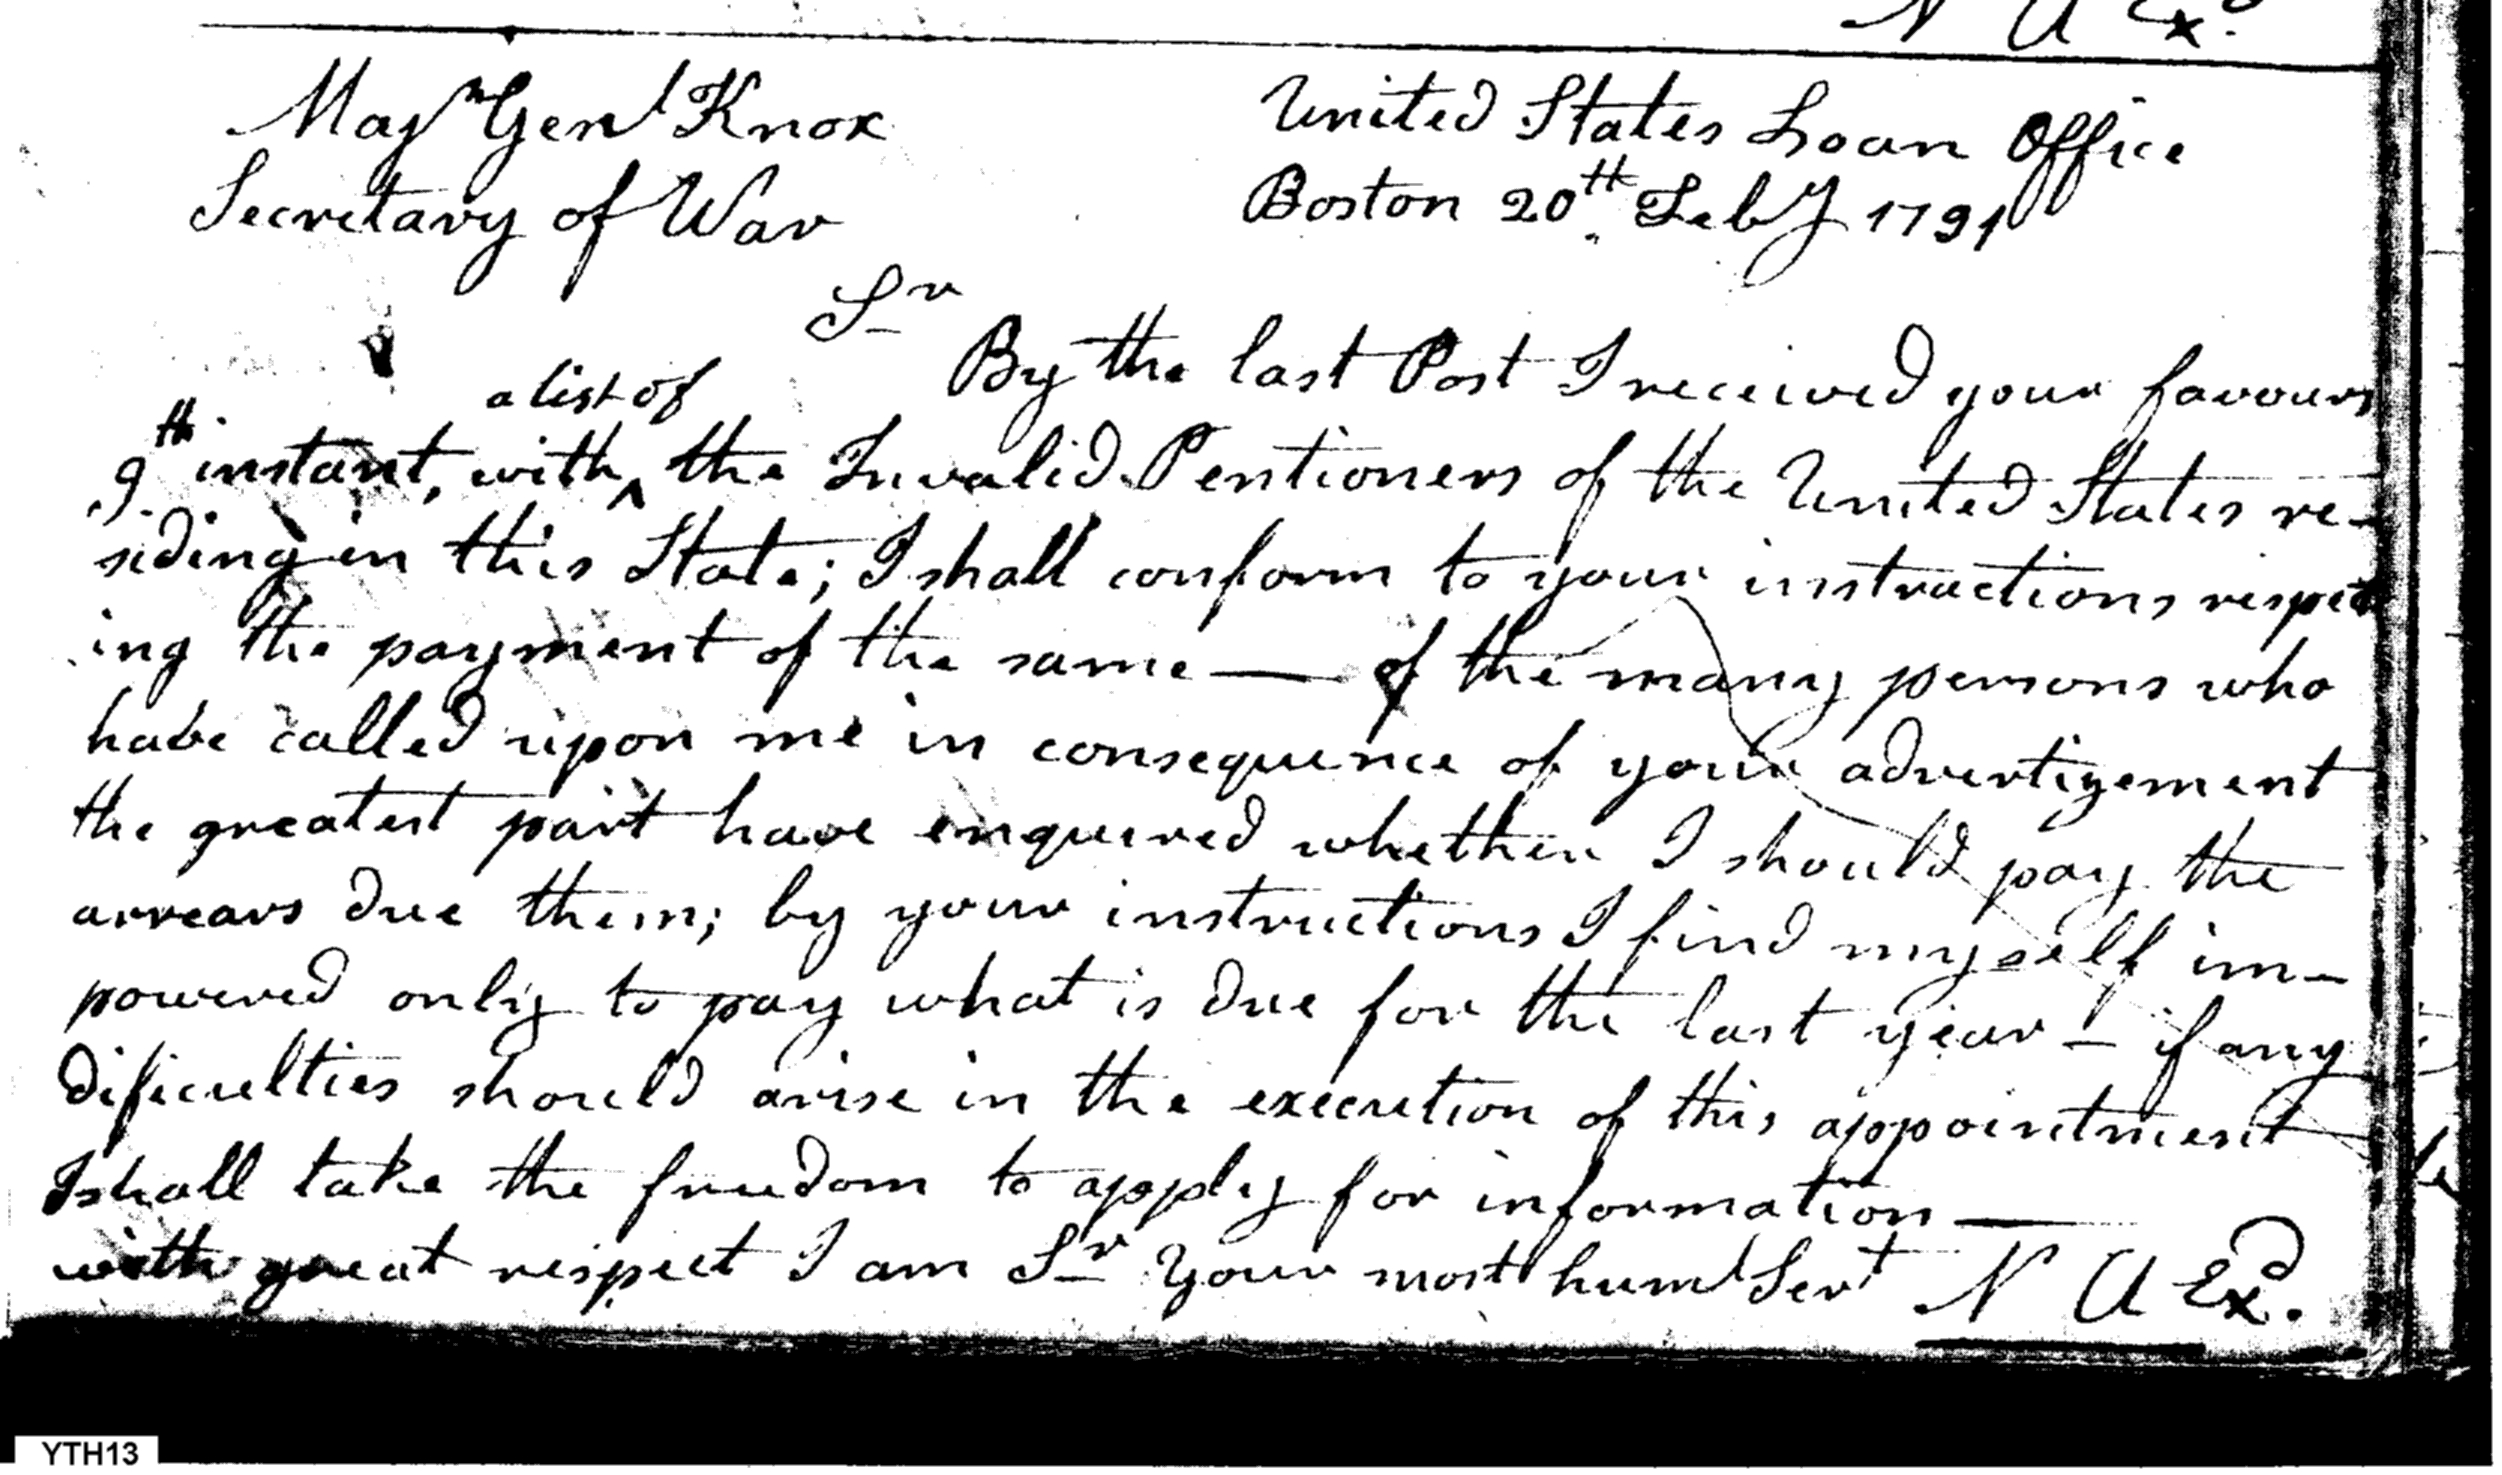 N A Ex.d
Majr Genl Knox
United States Loan Office
Secretary of War
Boston 20th Feby 1791
Sr
By the last Post I received your favours
a list of
9th instant, with ^ the Invalid Pentioners of the United States re-
siding in this State; I shall conform to your instructions respect
ing the payment of the same — of the many persons who
have called upon me in consequence of your advertizement
the greatest part have enquired whether I should pay the
arrears due them; by your instructions I find myself im-
powered only to pay what is due for the last year — if any
dificulties should arise in the execution of this appointment
I shall take the freedom to apply for information —
with great respect I am Sr Your most huml Servt N A Ex.d
YTH13